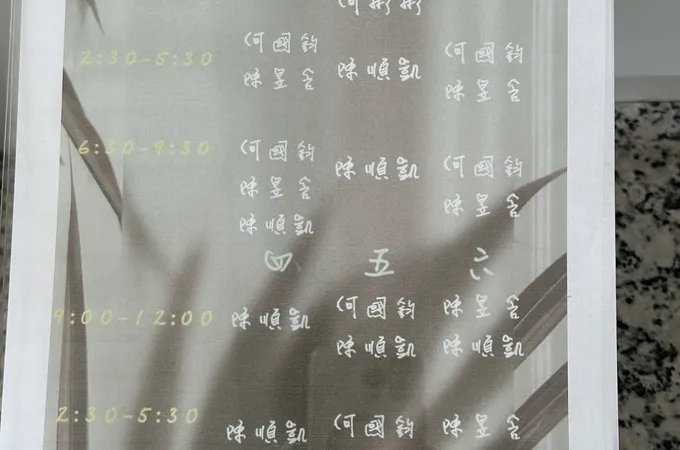 何彬彬
2:30-5:30 何國鈞 陳順凱 何國鈞
陳昱含 陳昱含
6:30-9:30 何國鈞 陳順凱 何國鈞
陳昱含 陳昱含
陳順凱
四 五 六
9:00-12:00 陳順凱 何國鈞 陳昱含
陳順凱 陳順凱
2:30-5:30 陳順凱 何國鈞 陳昱含